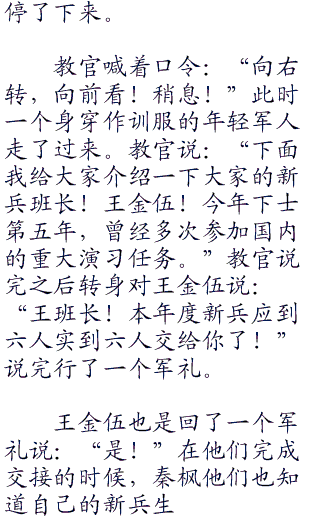 停了下来。
教官喊着口令：“向右
转，向前看！稍息！”此时
一个身穿作训服的年轻军人
走了过来。教官说：“下面
我给大家介绍一下大家的新
兵班长！王金伍！今年下士
第五年，曾经多次参加国内
的重大演习任务。”教官说
完之后转身对王金伍说：
“王班长！本年度新兵应到
六人实到六人交给你了！”
说完行了一个军礼。
王金伍也是回了一个军
礼说：“是！”在他们完成
交接的时候，秦枫他们也知
道自己的新兵生